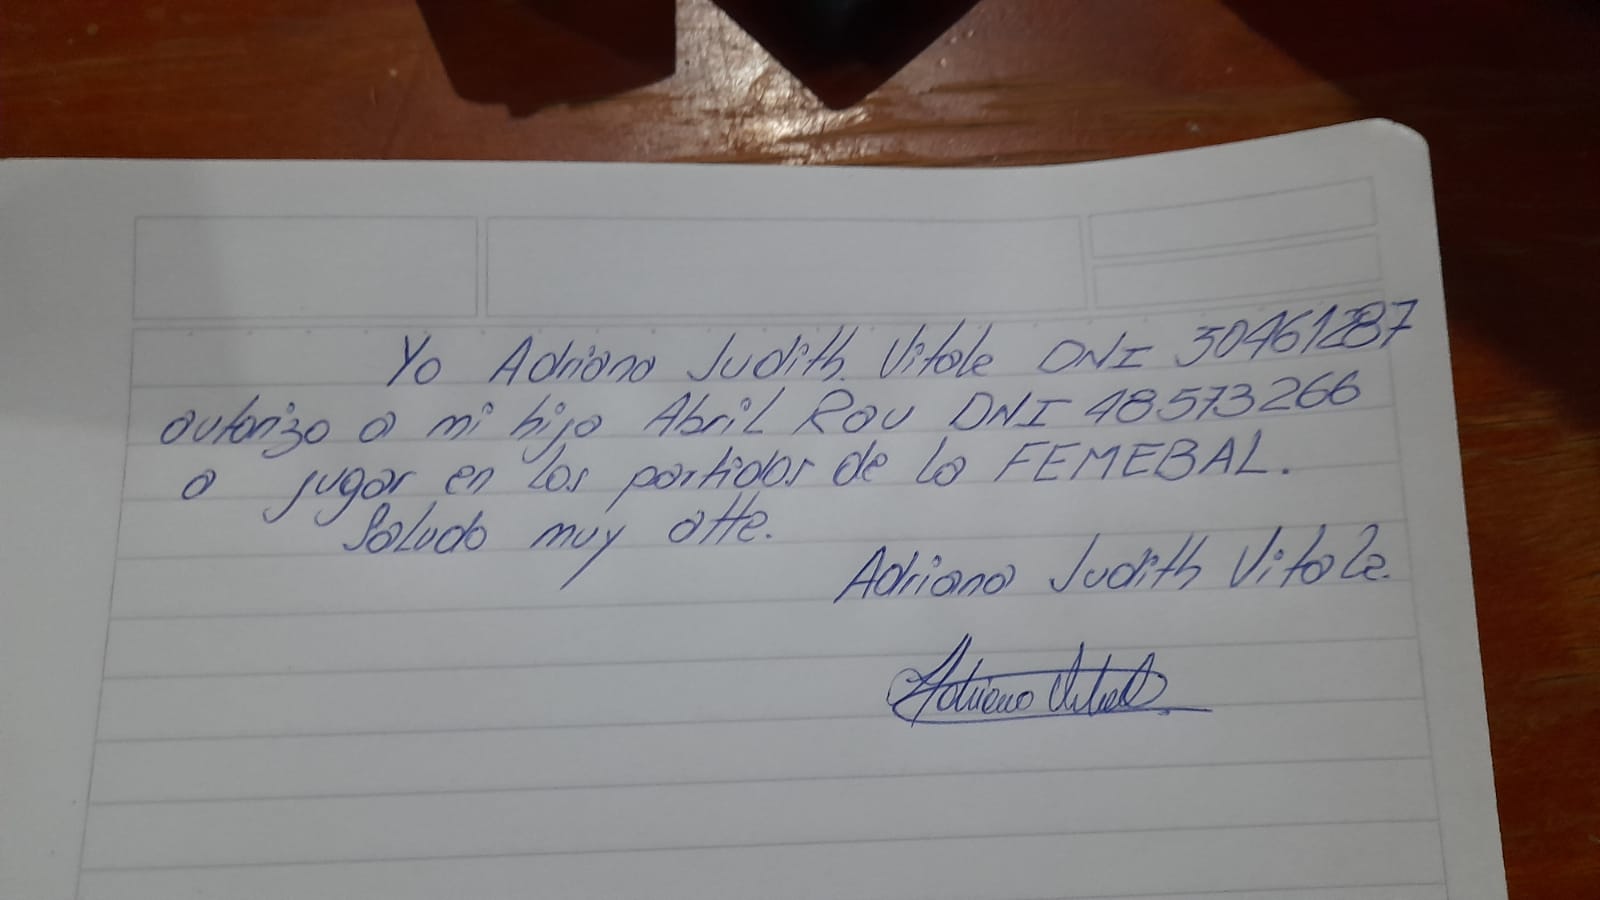 Yo Adriana Judith Vitale DNI 30461287
autorizo a mi hija Abril Rau DNI 48573266
a jugar en los partidos de la FEMEBAL.
Saludo muy atte.
Adriana Judith Vitale.
Adriana Vitale